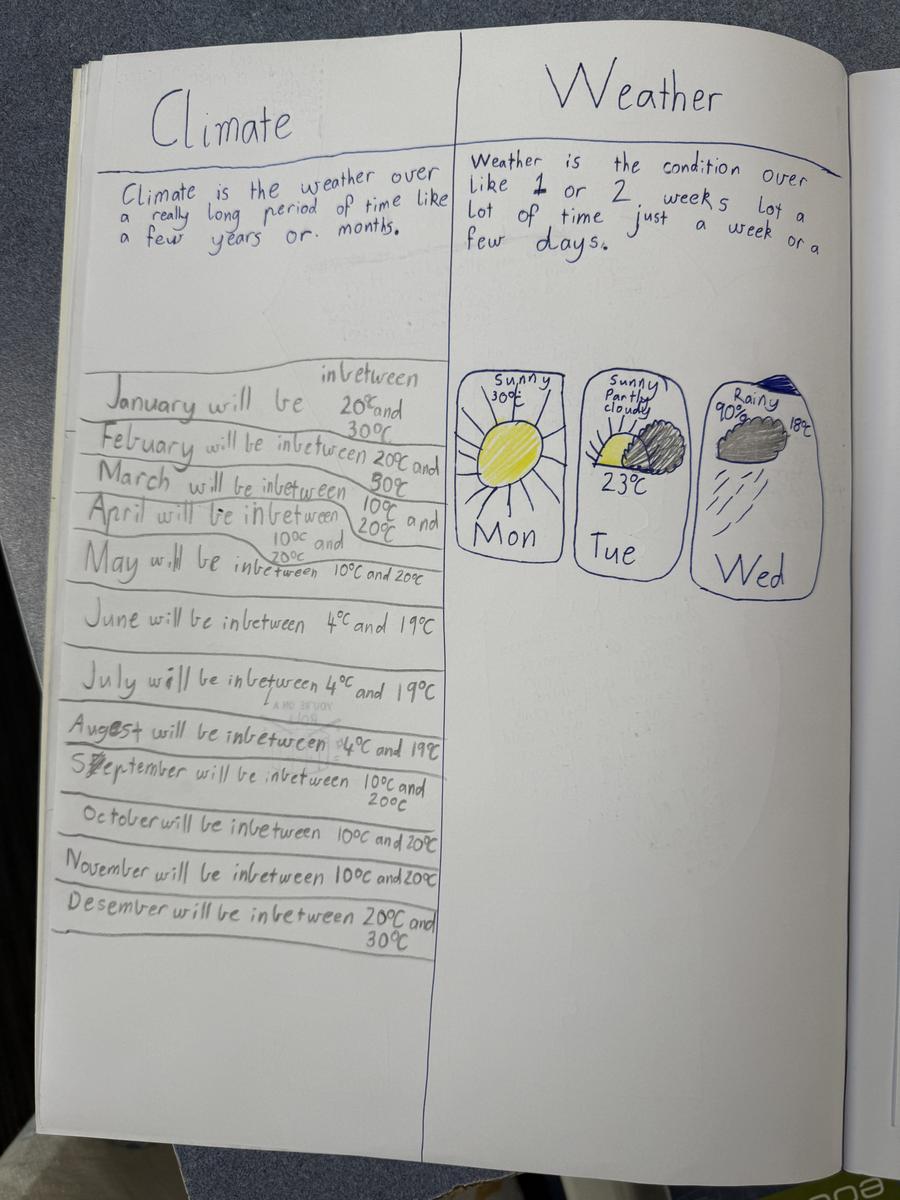 Climate
Climate is the weather over
a really long period of time like
a few years or. months.
inbetween
January will be 20°C and
30°C
Febuary will be inbetween 20°C and
30°C
March will be inbetween 10°C and
20°C
April will be inbetween
10°C and
20°C
May will be inbetween 10°C and 20°C
June will be inbetween 4°C and 19°C
July will be inbetween 4°C and 19°C
Augest will be inbetween 4°C and 19°C
September will be inbetween 10°C and
20°C
October will be inbetween 10°C and 20°C
November will be inbetween 10°C and 20°C
Desember will be inbetween 20°C and
30°C
Weather
Weather is the condition over
like 1 or 2 weeks lot a
lot of time just a week or a
few days.
Sunny
30°C
Mon
Sunny
Partly
cloudy
23°C
Tue
Rainy
90%
18°C
Wed